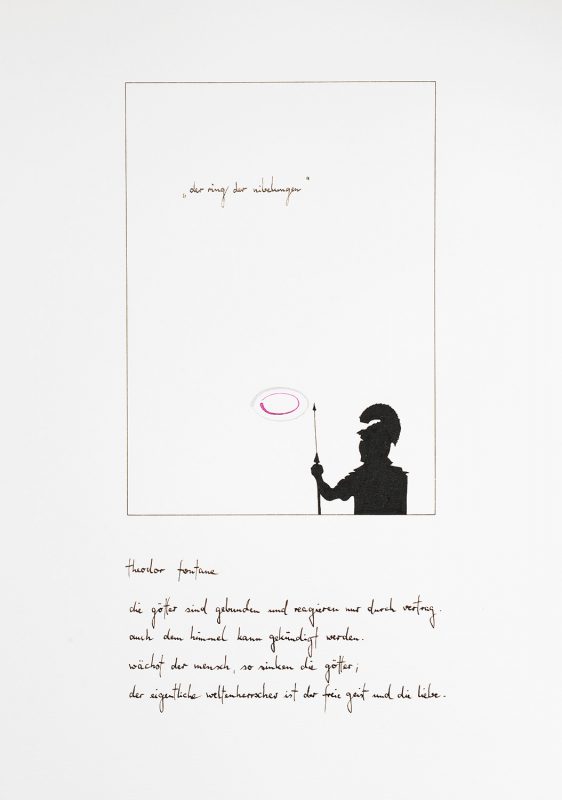 „der ring der nibelungen"
theodor fontane
die götter sind gebunden und reagieren nur durch vertrag.
auch dem himmel kann gekündigt werden.
wächst der mensch, so sinken die götter;
der eigentliche weltenherrscher ist der freie geist und die liebe.